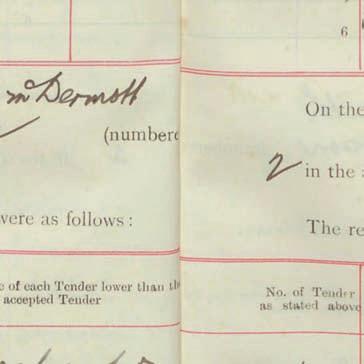 6
McDermott
On the
(numbere
2 in the
were as follows:
The re
e of each Tender lower than th
accepted Tender
No. of Tender
as stated above